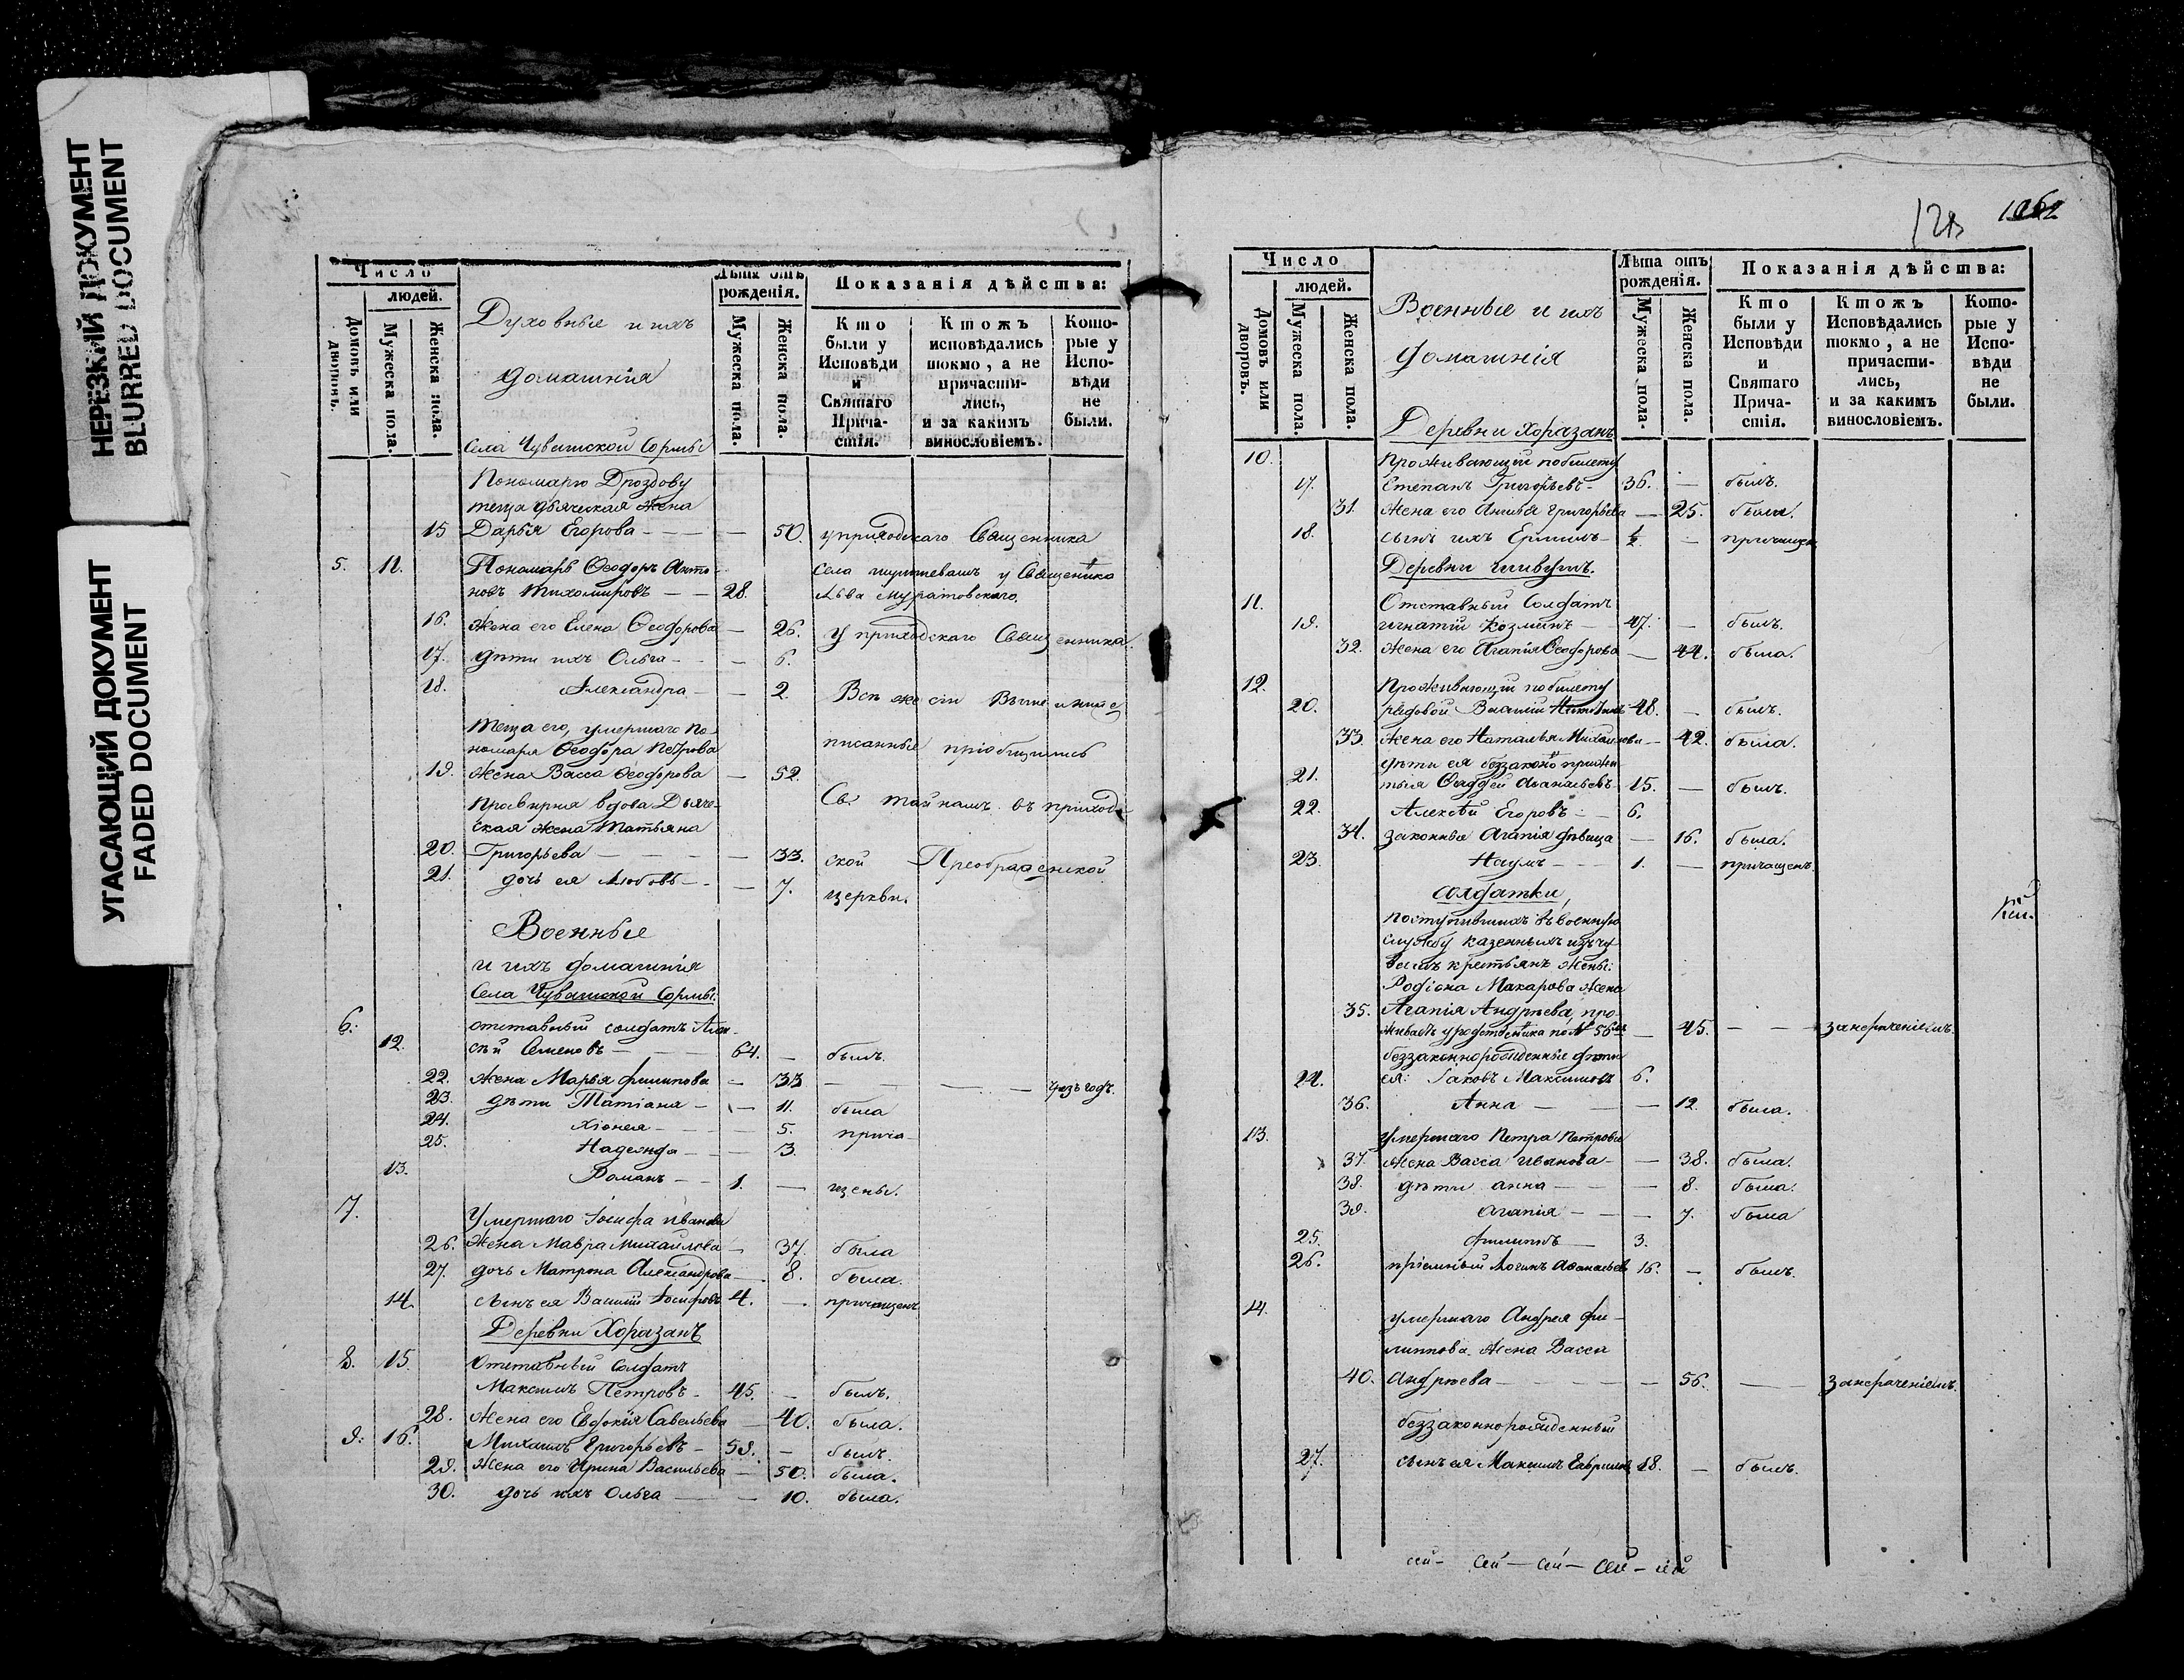 НЕРЕЗКИЙ ДОКУМЕНТ
BLURRED DOCUMENT
УГАСАЮЩИЙ ДОКУМЕНТ
FADED DOCUMENT
Число
людей.
Домовъ или дворовъ.
Мужеска пола.
Женска пола.
Духовные и ихъ
домашнія
Села Чувашской Сормы
Лѣта отъ рожденія.
Мужеска пола.
Женска пола.
Показанія дѣйства:
Кто были у Исповѣди и Святаго Прича-стія.
Ктожъ исповѣдались токмо, а не причасти-лись, и за какимъ винословіемъ.
Кото-рые у Испо-вѣди не были.
Пономарю Дроздову
теща дьяческая жена
15 Дарья Егорова — — 50. у приходскаго Священника
5. 11. Пономарь Ѳеодоръ Анто- села у Священника
новъ Тихомировъ — — 28. Льва Муратовскаго.
16. Жена его Елена Ѳеодорова — 26. У приходскаго Священника.
17. дѣти ихъ Ольга — — 6.
18. Александра — — 2. Всѣ же сіи выше и ниже
Теща его, умершаго По-
номаря Ѳеодора Петрова писанные пріобщились
19. Жена Васса Ѳеодорова — 52.
Просвирня вдова Дьяче- Св. тайнамъ въ приход-
ская жена Татьяна
20. Григорьева — — — 33. ской Преображенской
21. дочь ея Любовь — — 7. церкви.
Военные
и ихъ домашнія
Села Чувашской Сормы.
6. отставный солдатъ Алек-
12. сѣй Семеновъ — — 64. — былъ.
22. Жена Марья Филипова — 33 — — — чрезъ годъ.
23. дѣти Татіана — — 11. была
24. Хіонея — — 5. прича-
25. Надежда — — 3.
13. Романъ — — 1. — щены.
7. Умершаго Іосифа Иванова
26. Жена Мавра Михайлова — 37. была
27. дочь Матрона Александрова — 8. была.
14. сынъ ея Василій Іосифовъ 4. — причащенъ
Деревни Хоразанъ
8. 15. Отставный солдатъ
Максимъ Петровъ — 45. — былъ.
28. Жена его Евдокія Савельева — 40. была.
9. 16. Михаилъ Григорьевъ — 59. — былъ.
29. Жена его Ирина Васильева — 50. была.
30. дочь ихъ Ольга — — 10. была.
Число
людей.
Домовъ или дворовъ.
Мужеска пола.
Женска пола.
Военные и ихъ
домашнія
Деревни Хоразанъ
Лѣта отъ рожденія.
Мужеска пола.
Женска пола.
Показанія дѣйства:
Кто были у Исповѣди и Святаго Прича-стія.
Ктожъ Исповѣдались токмо, а не причасти-лись, и за какимъ винословіемъ.
Кото-рые у Испо-вѣди не были.
10. Проживающій по билету
17. Степанъ Григорьевъ — 36. — былъ.
31. Жена его Анисья Григорьева — 25. была.
18. сынъ ихъ Ермилъ — ½ — причащенъ
Деревни
11. Отставный Солдатъ
19. Игнатій Козминъ — 47. — былъ.
32. Жена его Агапія Ѳеодорова — 44. была.
12. Проживающій по билету
20. рядовой Василій Никитинъ 48. — былъ.
33. Жена его Наталья Михайлова — 42. была.
дѣти ея беззаконно прижи-
21. тыя Ѳаддей Аѳанасьевъ — 15. — былъ.
22. Алексѣй Егоровъ — — 6.
34. законныя Агапія дѣвица — 16. была.
23. Наумъ — — 1. — причащенъ.
солдатки,
поступившихъ въ военную
службу казенныхъ изъ чу-
вашъ крестьянъ жены:
Родіона Макарова жена
35. Агапія Андреева, про-
живаетъ у родственника по № 56 — 45. — — за нераченіемъ.
беззаконнорожденные дѣти
24. ея: Іаковъ Максимовъ 6.
36. Анна — — — 12. была.
13. Умершаго Петра Петрова
37. Жена Васса Иванова — — 38. была.
38. дѣти Анна — — 8. была.
39. Агапія — — 7. была
25. Филиппъ — 3.
26. пріемный Логинъ Аѳанасьев 16. — былъ.
14. умершаго Андрея Фи-
липпова жена Васса
40. Андреева — — — 56. — за нераченіемъ.
беззаконнорожденный
27. сынъ ея Максимъ Гавриловъ 18. — былъ.